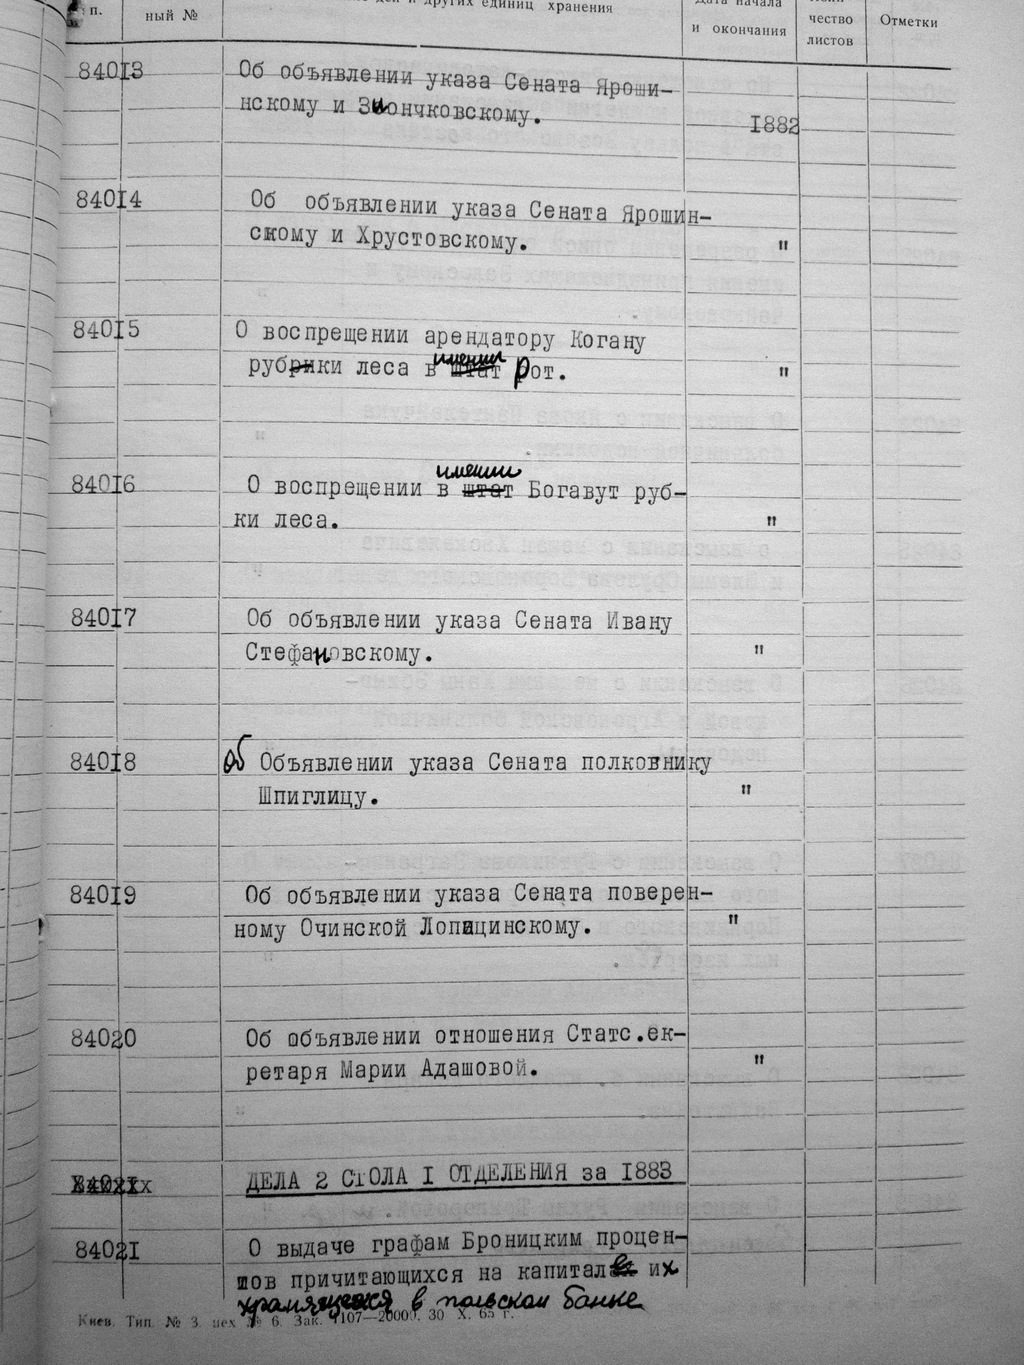 п.
ный №
дел и других единиц хранения
Дата начала
и окончания
чество
листов
Отметки
84013
Об объявлении указа Сената Яроши-
нскому и Зиончковскому.
1882
84014
Об объявлении указа Сената Ярошин-
скому и Хрустовскому.
"
84015
О воспрещении арендатору Когану
имении
рубки леса в штат Рот.
"
имении
84016
О воспрещении в штат Богавут руб-
ки леса.
"
84017
Об объявлении указа Сената Ивану
Стефановскому.
"
84018
Об Объявлении указа Сената полковнику
Шпиглицу.
"
84019
Об объявлении указа Сената поверен-
ному Очинской Лопицинскому.
"
84020
Об объявлении отношения Статс.ек-
ретаря Марии Адашовой.
"
ДЕЛА 2 СТОЛА I ОТДЕЛЕНИЯ за 1883
84021
О выдаче графам Броницким процен-
тов причитающихся на капитал их
хранящегося в польском банке
Киев. Тип. № 3. цех № 6. Зак. 1107—20000. 30 X. 65 г.